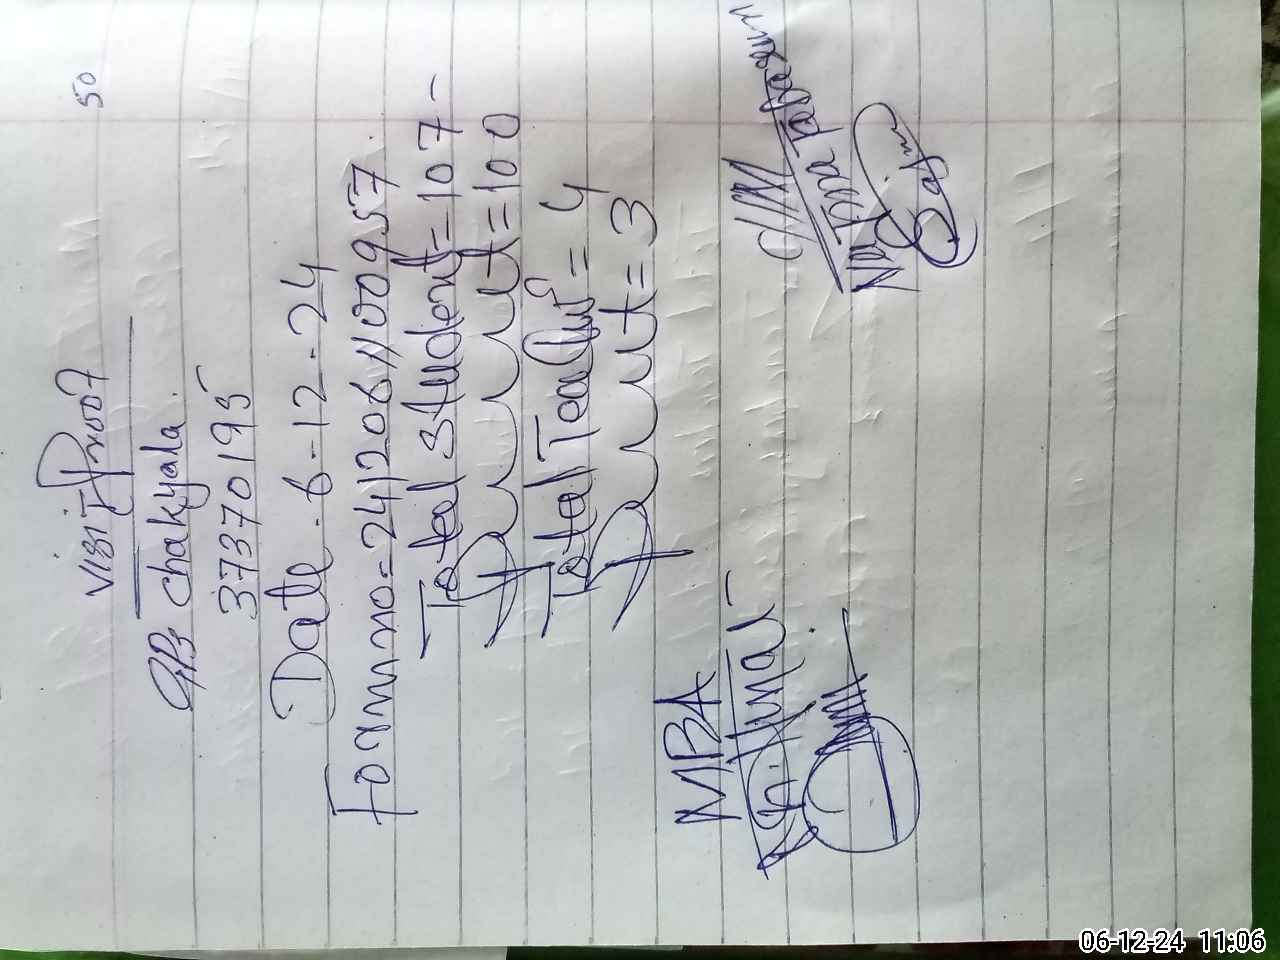 50
VISIT Proof
GPS Chakyala
37370195
Date - 6-12-24
Form no = 2412061100957
Total Student = 107 -
Present = 100
Total Teacher = 4
Present = 3
MBA
R. Kumar